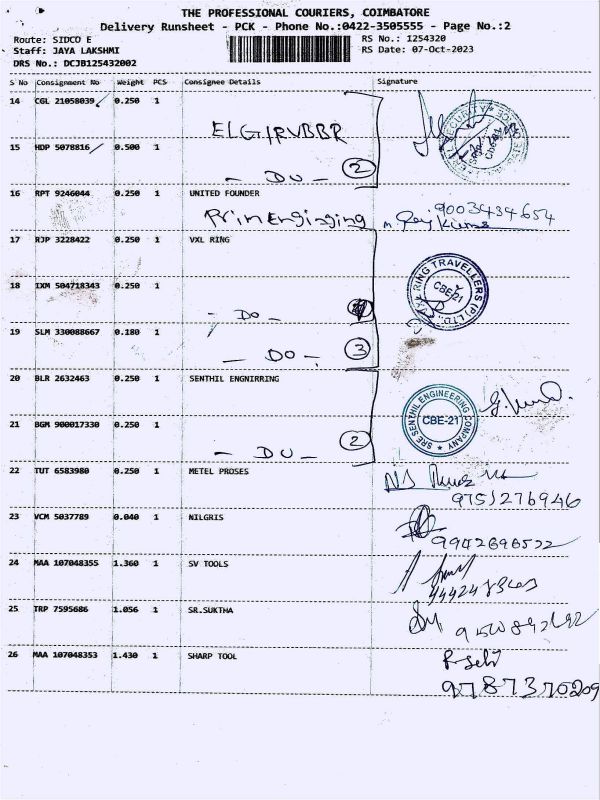 THE PROFESSIONAL COURIERS, COIMBATORE
Delivery Runsheet - PCK - Phone No.:0422-3505555 - Page No.:2
Route: SIDCO E RS No.: 1254320
Staff: JAYA LAKSHMI RS Date: 07-Oct-2023
DRS No.: DCJB125432002
S No Consignment No Weight PCS Consignee Details Signature
14 CGL 21058039 0.250 1
ELGI RUBBR
15 HDP 5078816 0.500 1
- DO - 2
16 RPT 9246044 0.250 1 UNITED FOUNDER
9003434654
17 RJP 3228422 0.250 1 VXL RING
18 IXM 504718343 0.250 1
- DO -
CBE-21
19 SLM 330088667 0.180 1
- DO - 3
20 BLR 2632463 0.250 1 SENTHIL ENGNIRRING
SRE SENTHIL ENGINEERING COMPANY
CBE-21
21 BGM 900017330 0.250 1
- DO - 2
22 TUT 6583980 0.250 1 METEL PROSES
9751276946
23 VCM 5037789 0.040 1 NILGRIS
24 MAA 107048355 1.360 1 SV TOOLS
25 TRP 7595686 1.056 1 SR.SUKTHA
26 MAA 107048353 1.430 1 SHARP TOOL
9787370209